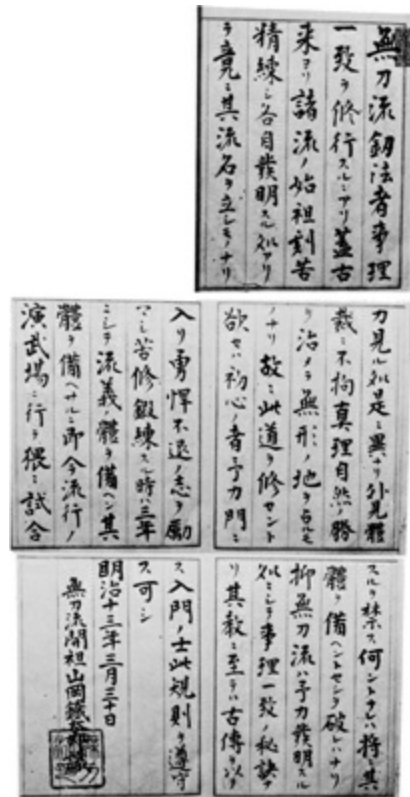 無刀流劔法者事理
一致ヲ修行スルニアリ蓋古
来ヨリ諸流ノ始祖刻苦
精練シ各自發明スル処アリ
テ竟ニ其流名ヲ立シモノナリ
カ見ル処是ニ異リ外見體
裁ニ不拘真理自然ノ勝
ヲ治メテ無形ノ地ヲ占ルモ
ノナリ故ニ此道ヲ修セント
欲セハ初心ノ者予カ門ニ
入リ勇悍不退ノ志ヲ勵
マシ苦修鍛練スル時ハ三年
ニシテ流義ノ體ヲ備ヘン其
體ヲ備ヘサルニ即今流行ノ
演武場ニ行テ猥ニ試合
スルヲ禁ス何ントナレハ将ニ其
體ヲ備ヘントセシヲ破レハナリ
抑無刀流ハ予カ發明スル
処ニシテ事理一致ノ秘訣ナ
リ其教ニ至テハ古傳ヲ以テ
ス入門ノ士此規則ヲ遵守
ス可シ
明治十三年三月三十日
無刀流開祖山岡鐵太郎